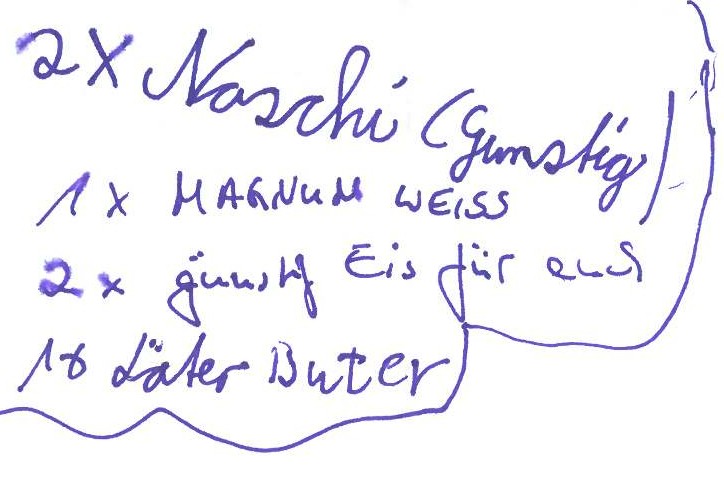 2x Naschi (Günstig)
1x MAGNUM WEISS
2x günstig Eis für euch
1x Läter Buter